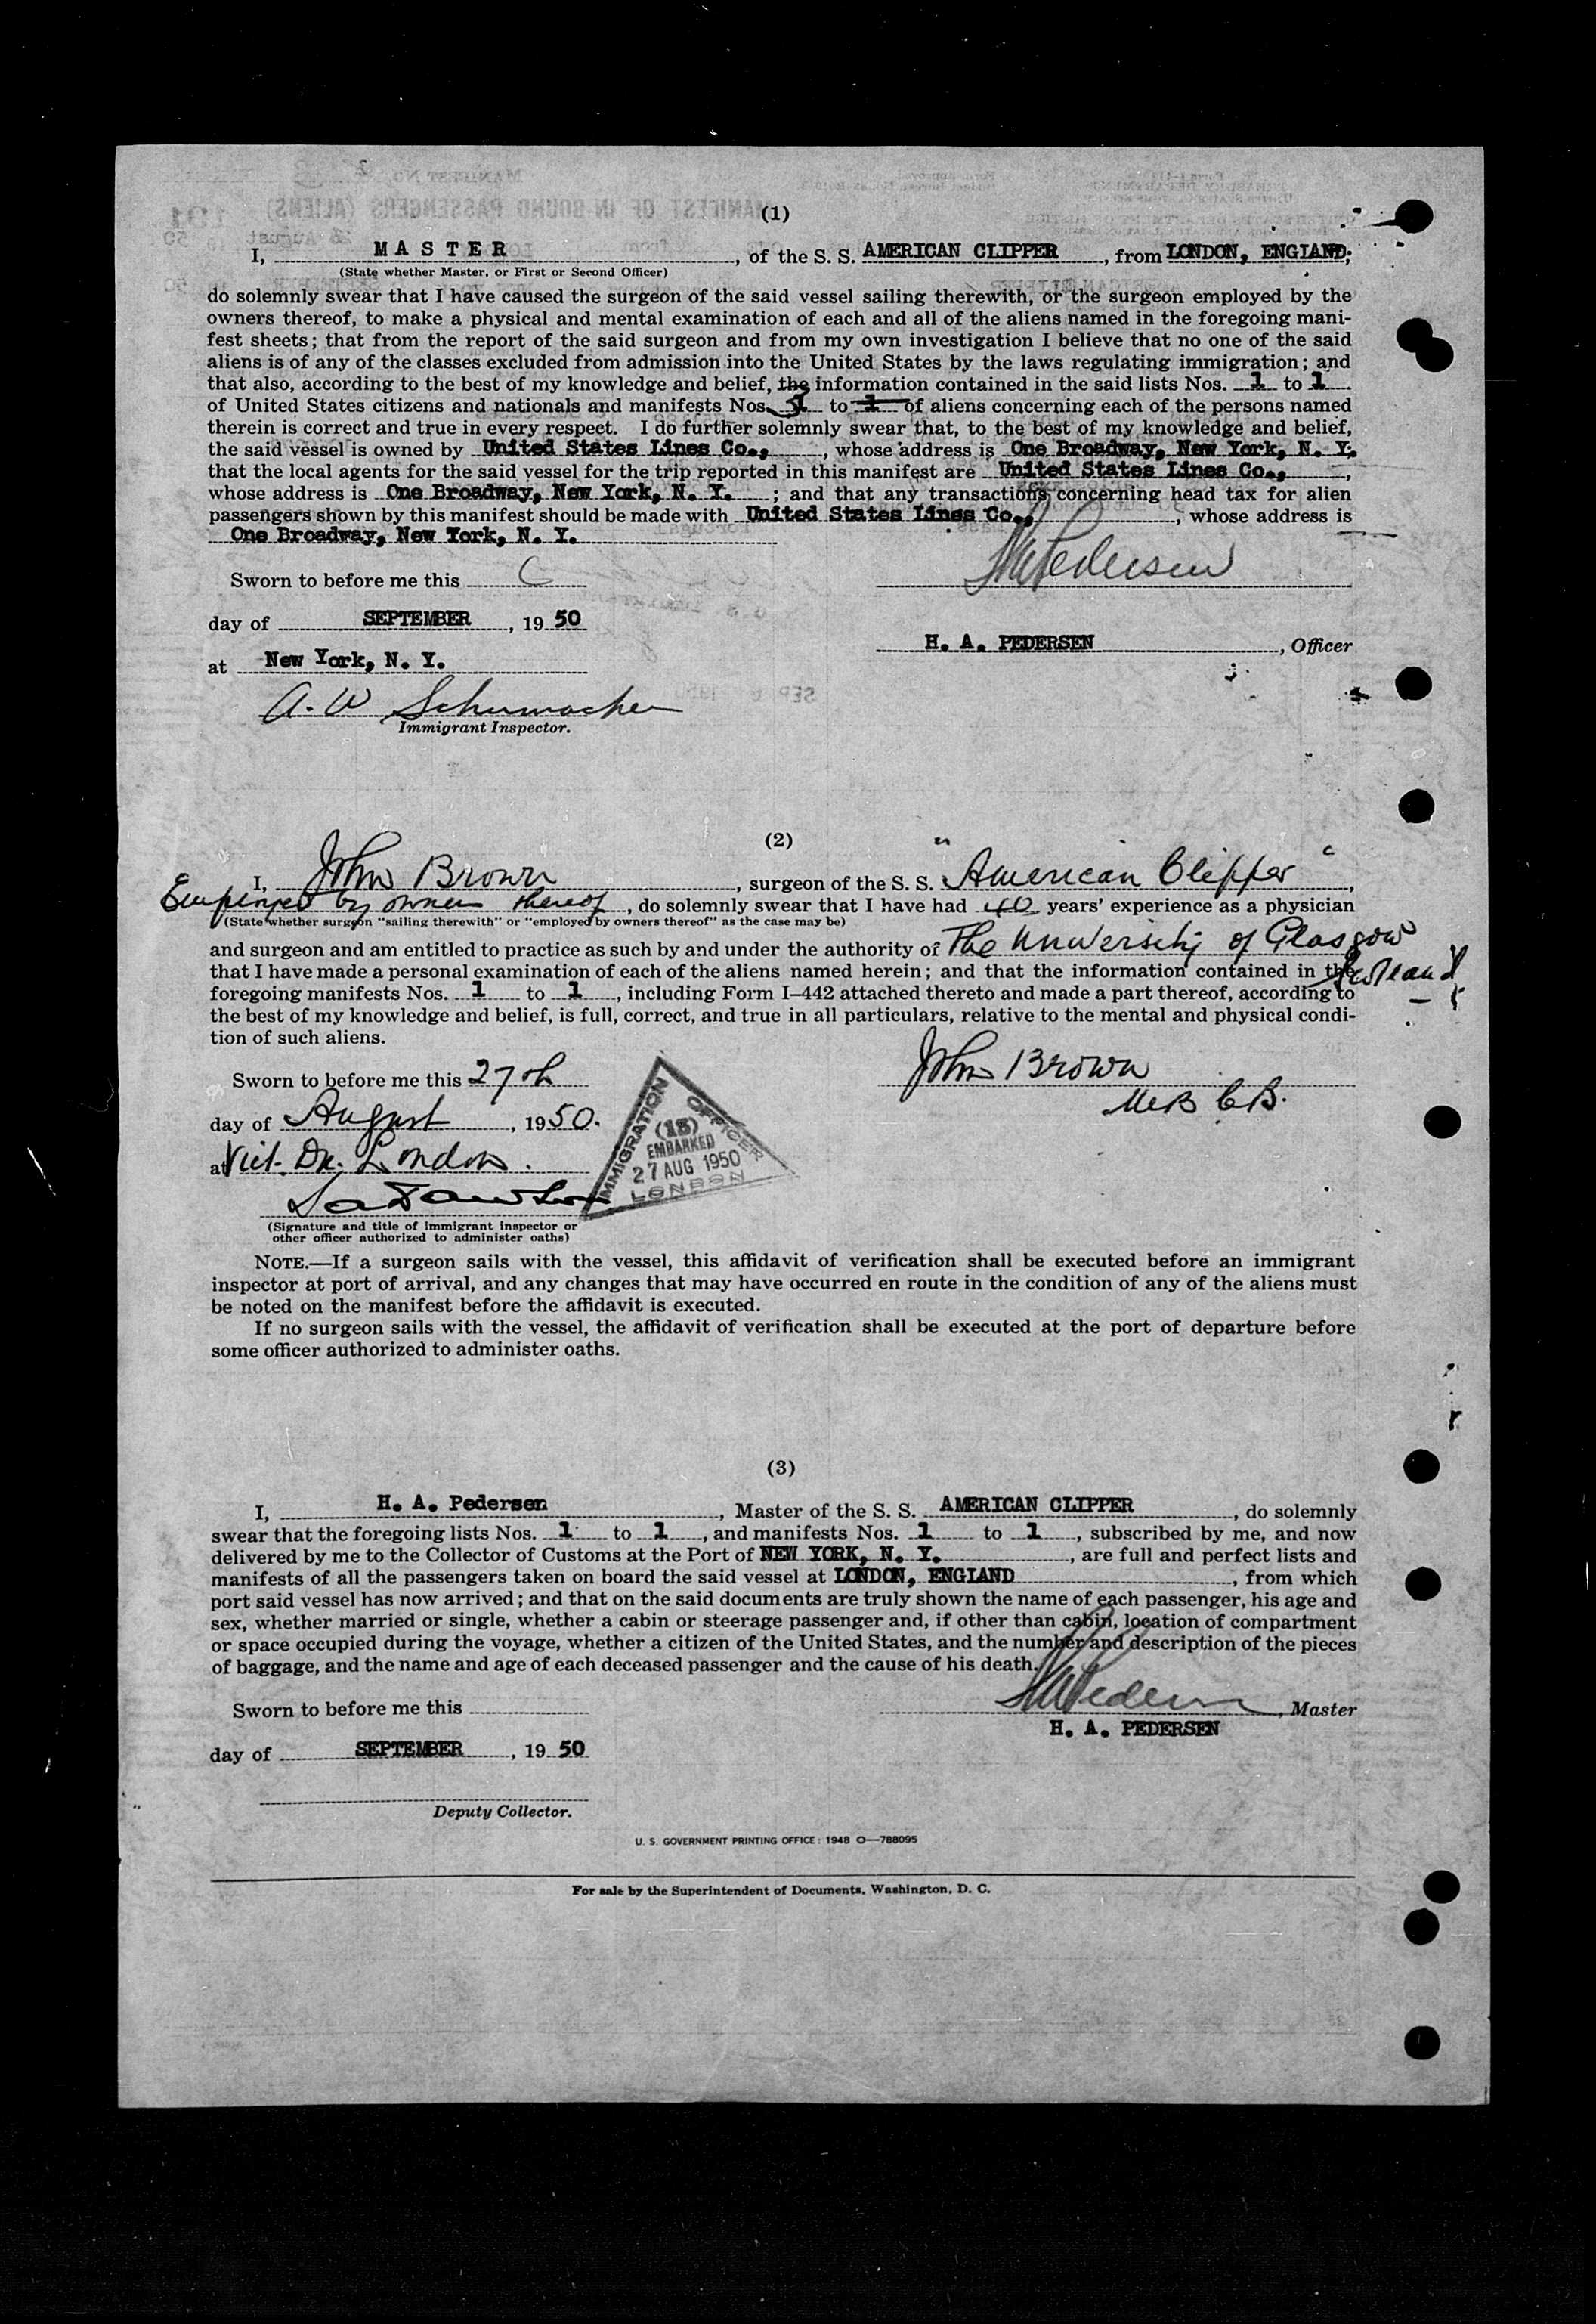 (1)
I, MASTER, of the S. S. AMERICAN CLIPPER, from LONDON, ENGLAND;
(State whether Master, or First or Second Officer)
do solemnly swear that I have caused the surgeon of the said vessel sailing therewith, or the surgeon employed by the
owners thereof, to make a physical and mental examination of each and all of the aliens named in the foregoing mani-
fest sheets; that from the report of the said surgeon and from my own investigation I believe that no one of the said
aliens is of any of the classes excluded from admission into the United States by the laws regulating immigration; and
that also, according to the best of my knowledge and belief, the information contained in the said lists Nos. 1 to 1
of United States citizens and nationals and manifests Nos. to 1 of aliens concerning each of the persons named
therein is correct and true in every respect. I do further solemnly swear that, to the best of my knowledge and belief,
the said vessel is owned by United States Lines Co., , whose address is One Broadway, New York, N. Y.
that the local agents for the said vessel for the trip reported in this manifest are United States Lines Co., ,
whose address is One Broadway, New York, N. Y. ; and that any transactions concerning head tax for alien
passengers shown by this manifest should be made with United States Lines Co., , whose address is
One Broadway, New York, N. Y.
Sworn to before me this
HAPedersen
day of SEPTEMBER, 19 50
H. A. PEDERSEN, Officer
at New York, N. Y.
A. W Schumacher
Immigrant Inspector.
(2)
I, John Brown, surgeon of the S. S. "American Clipper",
Employed by owners thereof, do solemnly swear that I have had 40 years' experience as a physician
(State whether surgeon "sailing therewith" or "employed by owners thereof" as the case may be)
and surgeon and am entitled to practice as such by and under the authority of The University of Glasgow
Scotland
that I have made a personal examination of each of the aliens named herein; and that the information contained in the
foregoing manifests Nos. 1 to 1, including Form I–442 attached thereto and made a part thereof, according to
the best of my knowledge and belief, is full, correct, and true in all particulars, relative to the mental and physical condi-
tion of such aliens.
Sworn to before me this 27th
John Brown
M.B Ch.B.
day of August, 1950.
at Vict. Dk. London.
IMMIGRATION OFFICER
(13)
EMBARKED
27 AUG 1950
LONDON
(Signature and title of immigrant inspector or
other officer authorized to administer oaths)
NOTE.—If a surgeon sails with the vessel, this affidavit of verification shall be executed before an immigrant
inspector at port of arrival, and any changes that may have occurred en route in the condition of any of the aliens must
be noted on the manifest before the affidavit is executed.
If no surgeon sails with the vessel, the affidavit of verification shall be executed at the port of departure before
some officer authorized to administer oaths.
(3)
I, H. A. Pedersen, Master of the S. S. AMERICAN CLIPPER, do solemnly
swear that the foregoing lists Nos. 1 to 1, and manifests Nos. 1 to 1, subscribed by me, and now
delivered by me to the Collector of Customs at the Port of NEW YORK, N. Y. , are full and perfect lists and
manifests of all the passengers taken on board the said vessel at LONDON, ENGLAND, from which
port said vessel has now arrived; and that on the said documents are truly shown the name of each passenger, his age and
sex, whether married or single, whether a cabin or steerage passenger and, if other than cabin, location of compartment
or space occupied during the voyage, whether a citizen of the United States, and the number and description of the pieces
of baggage, and the name and age of each deceased passenger and the cause of his death.
Sworn to before me this
HAPedersen, Master
H. A. PEDERSEN
day of SEPTEMBER, 19 50
Deputy Collector.
U. S. GOVERNMENT PRINTING OFFICE : 1948 O—788095
For sale by the Superintendent of Documents, Washington, D. C.